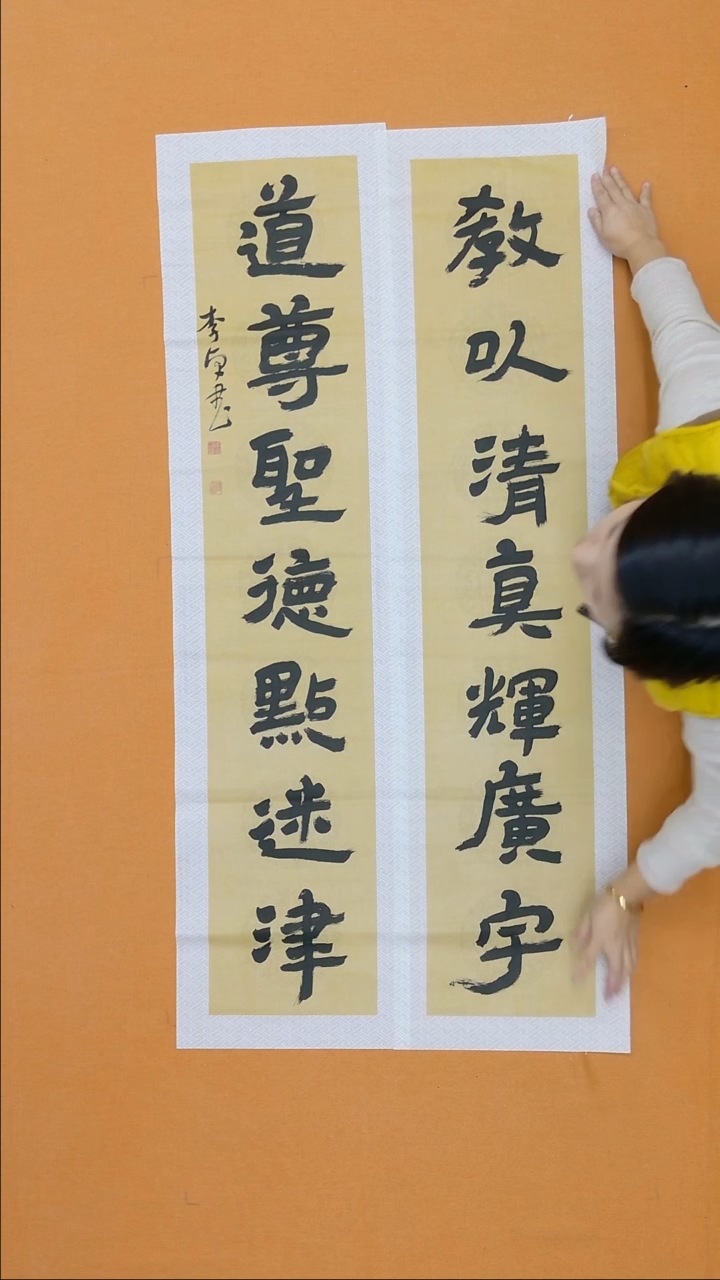 教以清真輝廣宇
道尊聖德點迷津
李